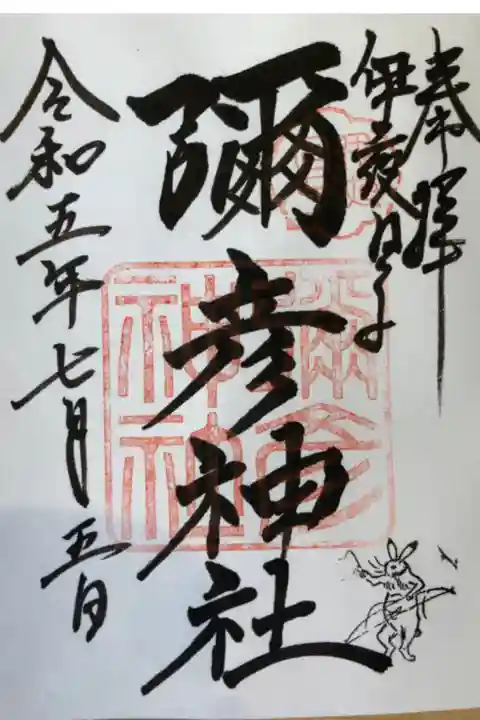 奉拝
伊夜日子
彌彦神社
彌彦
神社
令和五年七月五日